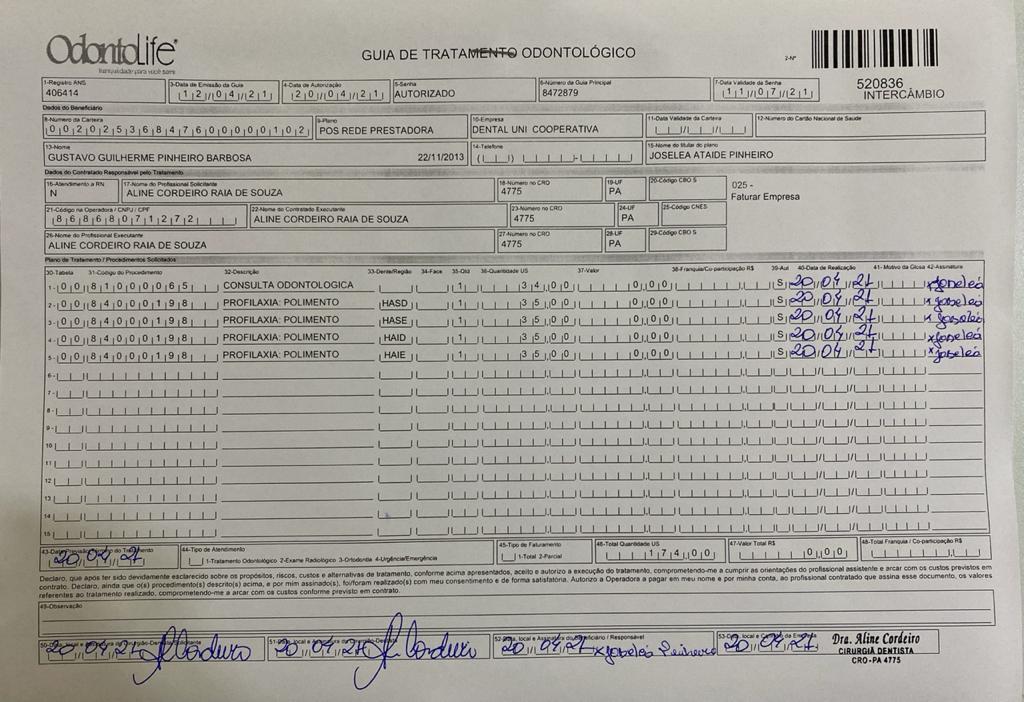 OdontoLife
tranquilidade para você sorrir
GUIA DE TRATAMENTO ODONTOLÓGICO
2-Nº
520836
INTERCÂMBIO
1-Registro ANS 3-Data de Emissão da Guia 4-Data de Autorização 5-Senha 6-Número da Guia Principal 7-Data Validade da Senha
406414 12/04/21 20/04/21 AUTORIZADO 8472879 11/07/21
Dados do Beneficiário
8-Número da Carteira 9-Plano 10-Empresa 11-Data Validade da Carteira 12-Número do Cartão Nacional de Saúde
00202536847600000102 POS REDE PRESTADORA DENTAL UNI COOPERATIVA
13-Nome 14-Telefone 15-Nome do titular do plano
GUSTAVO GUILHERME PINHEIRO BARBOSA 22/11/2013 JOSELEA ATAIDE PINHEIRO
Dados do Contratado Responsável pelo Tratamento
16-Atendimento a RN 17-Nome do Profissional Solicitante 18-Número no CRO 19-UF 20-Código CBO S
N ALINE CORDEIRO RAIA DE SOUZA 4775 PA
025 -
Faturar Empresa
21-Código na Operadora / CNPJ / CPF 22-Nome do Contratado Executante 23-Número no CRO 24-UF 25-Código CNES
86868071272 ALINE CORDEIRO RAIA DE SOUZA 4775 PA
26-Nome do Profissional Executante 27-Número no CRO 28-UF 29-Código CBO S
ALINE CORDEIRO RAIA DE SOUZA 4775 PA
Plano de Tratamento / Procedimentos Solicitados
30-Tabela 31-Código do Procedimento 32-Descrição 33-Dente/Região 34-Face 35-Qtd 36-Quantidade US 37-Valor 38-Franquia/Co-participação R$ 39-Aut 40-Data de Realização 41- Motivo da Glosa 42-Assinatura
1- 00 81000065 CONSULTA ODONTOLOGICA 1 34,00 0,00 S 20/04/21 x Joseleá
2- 00 84000198 PROFILAXIA: POLIMENTO HASD 1 35,00 0,00 S 20/04/21 x Joseleá
3- 00 84000198 PROFILAXIA: POLIMENTO HASE 1 35,00 0,00 S 20/04/21 x Joseleá
4- 00 84000198 PROFILAXIA: POLIMENTO HAID 1 35,00 0,00 S 20/04/21 x Joseleá
5- 00 84000198 PROFILAXIA: POLIMENTO HAIE 1 35,00 0,00 S 20/04/21 x Joseleá
6-
7-
8-
9-
10
11
12
13
14
15
44-Tipo de Atendimento 45-Tipo de Faturamento 46-Total Quantidade US 47-Valor Total R$ 48-Total Franquia / Co-participação R$
20/04/21 1-Tratamento Odontológico 2-Exame Radiológico 3-Ortodontia 4-Urgência/Emergência 1-Total 2-Parcial 174,00 0,00
Declaro, que apos ter sido devidamente esclarecido sobre os propósitos, riscos, custos e alternativas de tratamento, conforme acima apresentados, aceito e autorizo a execução do tratamento, comprometendo-me a cumprir as orientações do profissional assistente e arcar com os custos previstos em
contrato. Declaro, ainda que o(s) procedimento(s) descrito(s) acima, e por mim assinado(s), foi/foram realizado(s) com meu consentimento e de forma satisfatória. Autorizo a Operadora a pagar em meu nome e por minha conta, ao profissional contratado que assina esse documento, os valores
referentes ao tratamento realizado, comprometendo-me a arcar com os custos conforme previsto em contrato.
49-Observação
20/04/21 A Cordeiro 20/04/21 A Cordeiro 20/04/21 x Joseleá Pinheiro 20/04/21
Dra. Aline Cordeiro
CIRURGIÃ DENTISTA
CRO-PA 4775